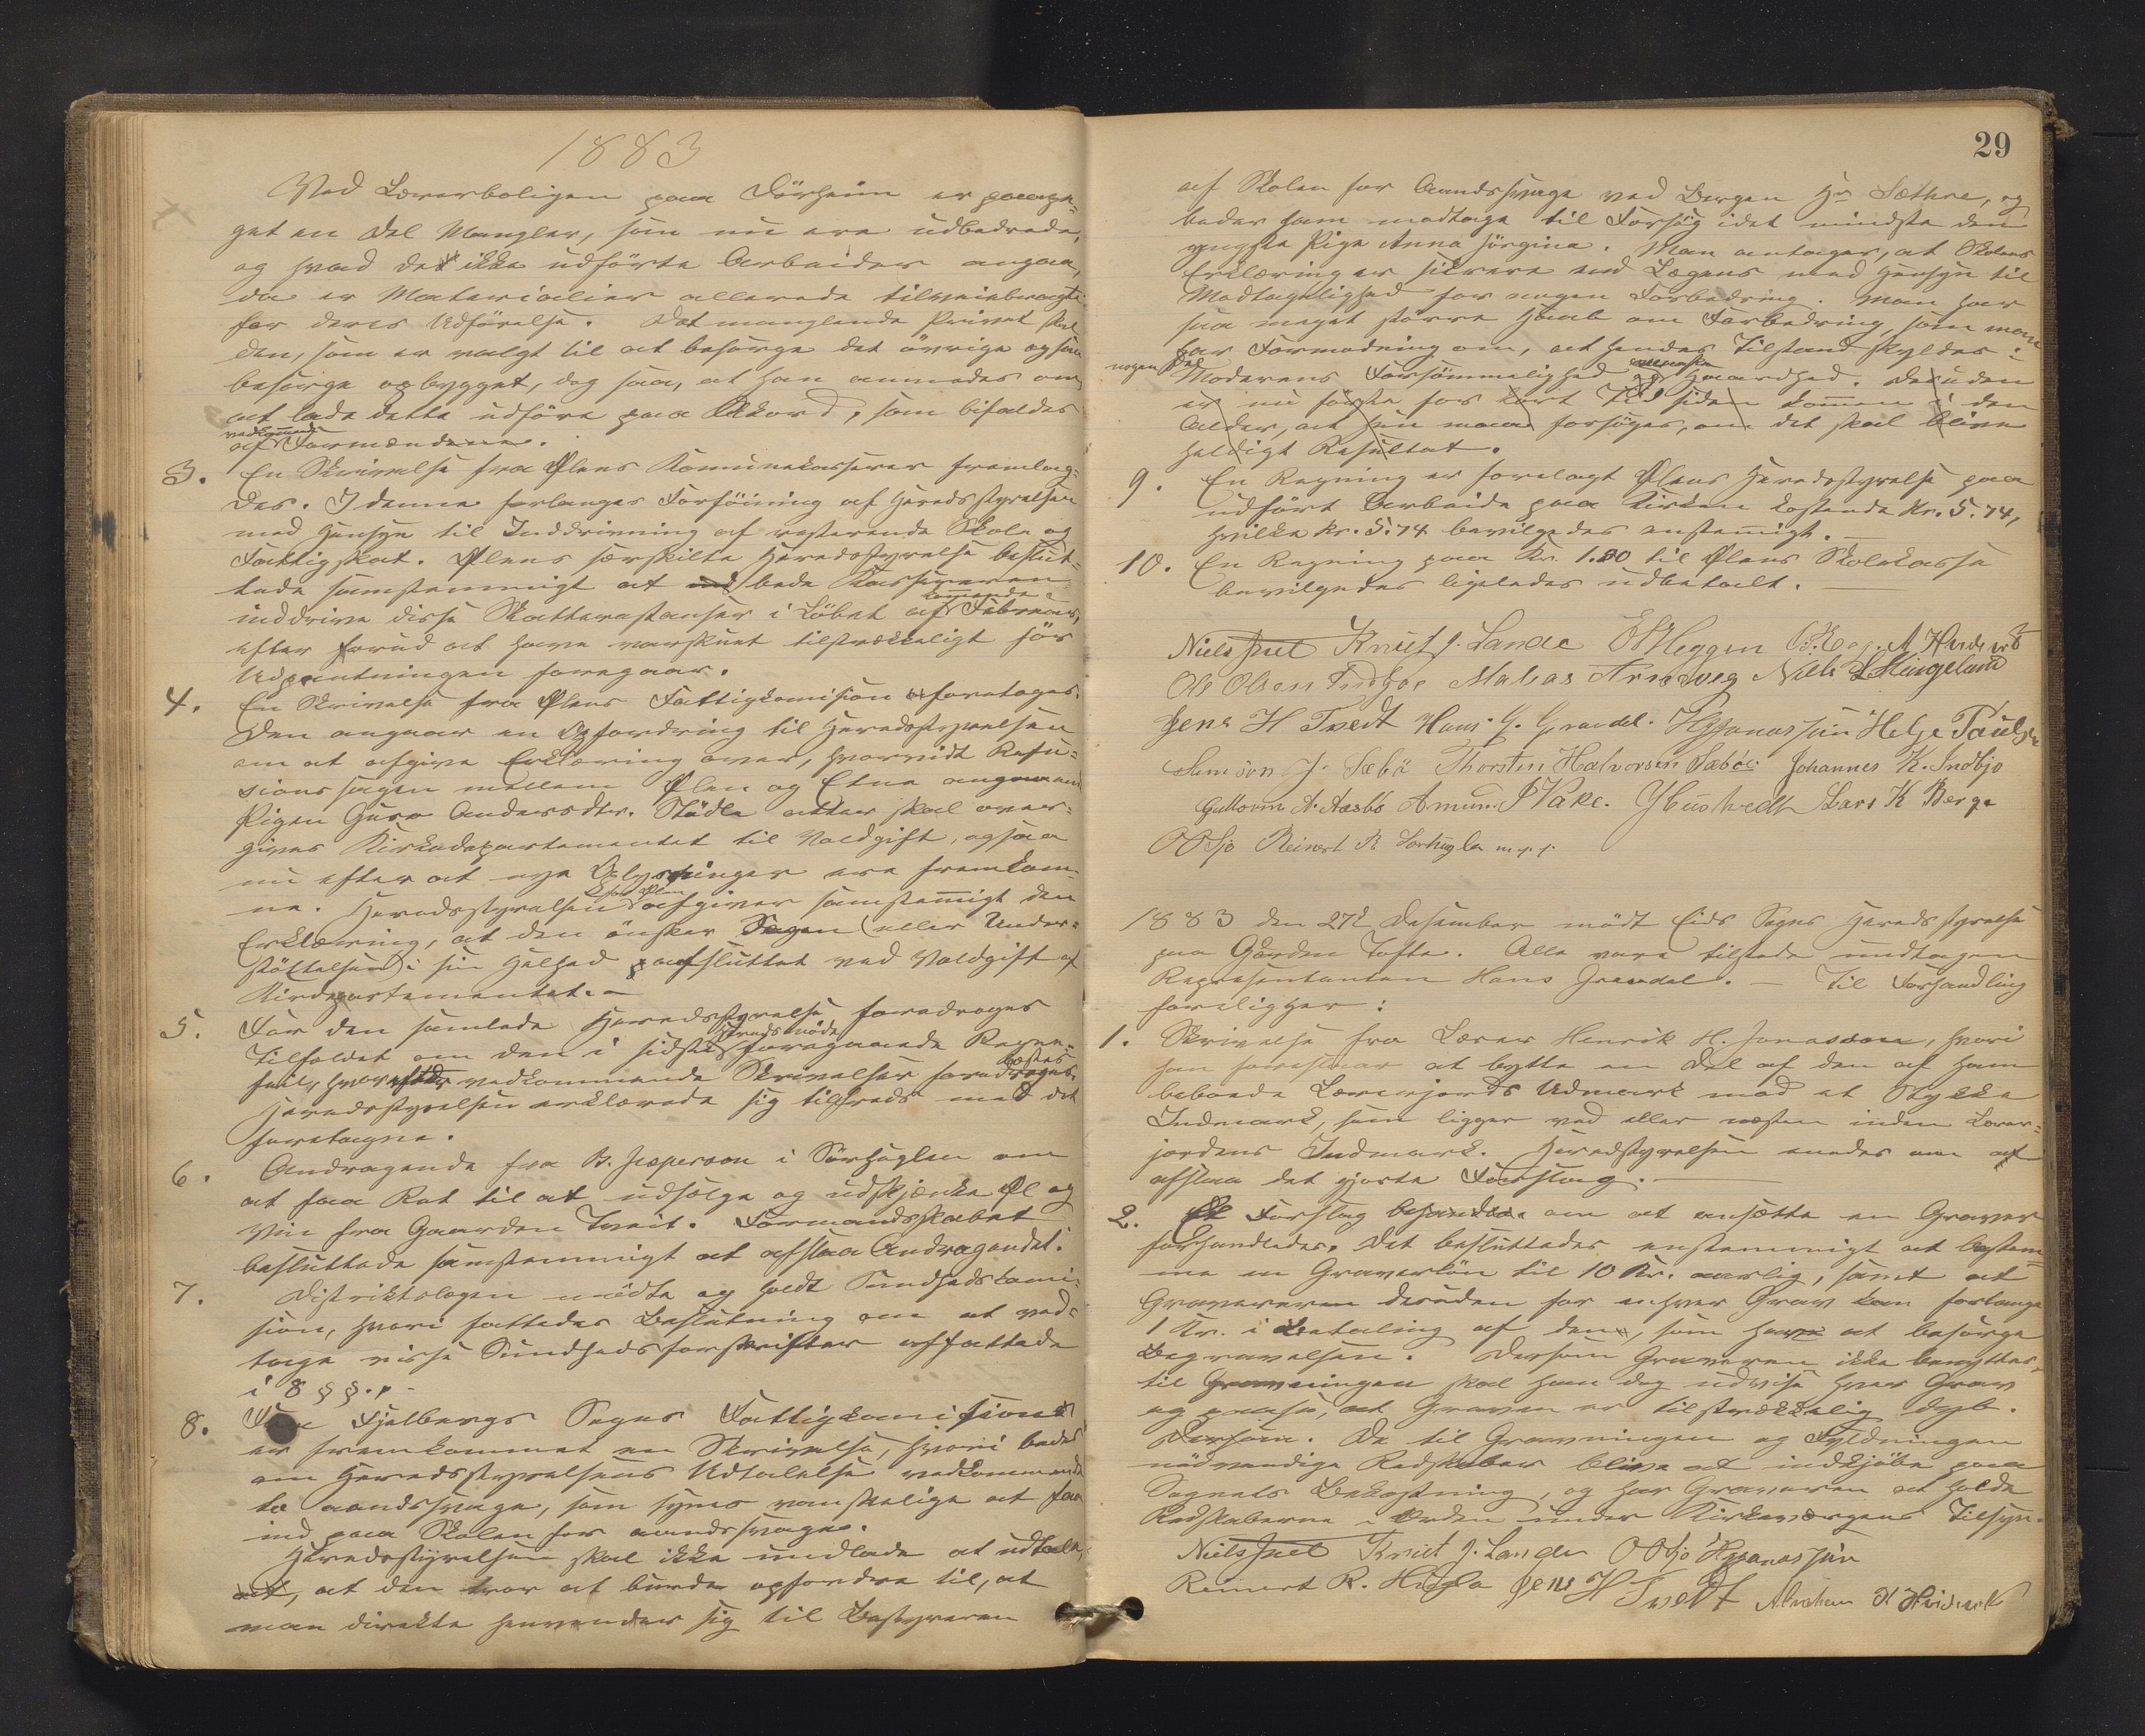 1883
Ved Lærerboligen paa Førheim er paape-
get en Del Mangler, som nu ere udbedrede,
og hvad det ikke udførte Arbeider angaa,
da er Materialier allerede tilveiebragte
for deres Udførelse. Det manglende Privet skal
den, som er valgt til at besørge det øvrige ogsaa
besørge opbygget, dog saa, at han anmodes om
at lade dette udføre paa Akkord, som bifaldes
vedkommende
af Formændene.
3. En Skrivelse fra Ølens Komunekasserer fremlag-
des. I denne forlanges Forføining af Heredsstyrelsen
med Hensyn til Inddrivning af resterende Skole og
Fattigskat. Ølens særskilte Heredsstyrelse beslut-
tede samstemmigt at bede Kassereren
kommende
inddrive disse Skatterestanser i Løbet af Februar,
efter forud at have varskuet tilstrækkeligt før
Udpantningen foregaar.
4. En Skrivelse fra Ølens Fattigkomision foretages.
Den angaar en Opfordring til Heredsstyrelsen
om at afgive Erklæring over, hvorvidt Refu-
sionssagen mellem Ølen og Etne angaaende
Pigen Guro Andersdtr. Stødle atter skal over-
gives Kirkedepartementet til Voldgift, ogsaa
nu efter at nye Oplysninger ere fremkom-
for Ølen
ne. Heredsstyrelsen afgiver samstemigt den
Erklæring, at den ønsker Sagen (eller Under-
støttelsen) i sin Helhed afsluttet ved Voldgift af
Kirdepartementet. -
5. For den samlede Heredsstyrelse foredroges
Heredsmøde
Tilfældet om den i sidste foregaaende Regne-
læstes
feil, hvorefter vedkommende Skrivelser foredroges.
Heredsstyrelsen erklærede sig tilfreds med det
foretagne.
6. Andragende fra B. Jesperson i Sørhuglen om
at faa Ret til at udsælge og udskjænke Øl og
Vin fra Gaarden Tveit. Formandsskabet
besluttede samstemmigt at afslaa Andragendet.
7. Distriktslægen mødte og holdt Sundhedskomi-
sion, hvori fattedes Beslutning om at ved-
tage visse Sundhedsforskrifter affattede
i 8 §§. -
8. Fra Fjelbergs Sogns Fattigkomision
er fremkommet en Skrivelse, hvori bedes
om Heredsstyrelsens Udtalelse vedkommende
to aandssvage, som synes vanskelige at faa
ind paa Skolen for aandssvage.
Heredsstyrelsen skal ikke undlade at udtale,
at, at den tror at burde opfordre til, at
man direkte henvender sig til Bestyreren
29
af Skolen for Aandssvage ved Bergen Hr Sæthre, og
beder ham modtage til Forsøg idet mindste den
yngste Pige Anna Jørgine. Man antager, at Skolens
Erklæring er sikrere end Lægens med Hensyn til
Modtagelighed for nogen Forbedring. Man har
saa meget større Haab om Forbedring, som man
har Formodning om, at hendes Tilstand skyldes
nogen
Moderens Forsømmelighed og Haardhed. Desuden
er nu første for kort Tid siden kommen i den
Alder, at hun maa forsøges, om det skal blive
heldigt Resultat.
9. En Regning er forelagt Ølens Heredsstyrelse paa
udført Arbeide paa Kirken kostende Kr. 5.74,
hvilke Kr. 5.74 bevilgedes enstemigt. -
10. En Regning paa Kr. 1.80 til Ølens Skolekasse
bevilgedes ligeledes udbetalt. -
Niels Juel Knut J. Lande E Heggen A Hindervik
Ole Olsen Indbjoe Matias Arnevig Nils L Hingeland
Jens H Tvedt Hans G. Grændal. H Jonassøn Helje Paulsen
Samson J. Sæbø Thorsten Halvorsen Sæbøe Johannes K. Indbjo
Guttorm A. Aasbø Amun. J Vake. Y Eustvedt Lars K Berge
O O Sjo Reinert R Sørhugla m.p.p.
1883 den 27de Desember mødt Eids Sogns Heredsstyrelse
paa Gaarden Tofte. Alle vare tilstede undtagen
Repræsentanten Hans Grændal. - Til Forhandling
foreligger:
1. Skrivelse fra Lærer Henrik H. Jonassen, hvori
han foreslaar at bytte en Del af den af ham
beboede Lærerjords Udmark mod et Stykke
Indmark, som ligger ved eller næsten inden Lærer-
jordens Indmark. Heredsstyrelsen enedes om at
afslaa det gjorte Forslag. -
2. Et Forslag om at ansætte en Graver
forhandledes. Det besluttedes enstemmigt at bestem-
me en Graverløn til 10 Kr. aarlig, samt at
Graveren desuden for enhver Grav kan forlange
1 Kr. i Betaling af den, som have at besørge
Begravelsen. Dersom Graveren ikke benyttes
til Gravningen skal han dog udvise hver Grav
og paase, at Graven er tilstrækkelig dyb.
Dersom. De til Gravningen og Fyldningen
nødvendige Redskaber blive at indkjøbe paa
Sognets Bekostning, og har Graveren at holde
Redskaberne i Orden under Kirkeværgens Tilsyn.
Niels Juel Knut J. Lande O O Sjo H Jonassøn
Reinert R. Hugla Jens H Tvedt Abraham H Hindervik